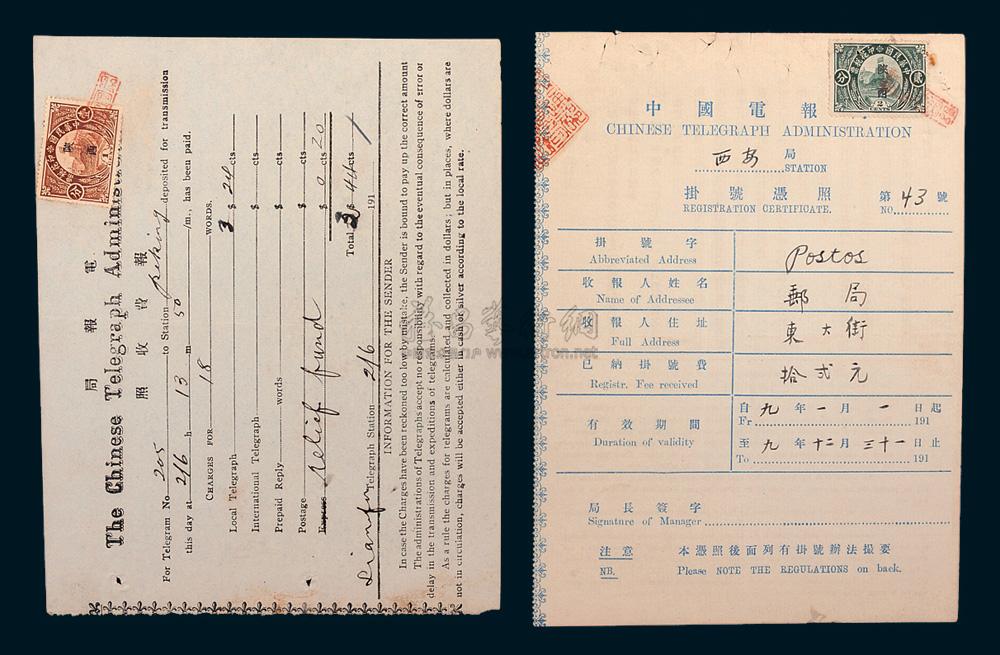 局報電
The Chinese Telegraph Adminis
照收費報
For Telegram No. 205 deposited for transmission
this day at 2/6 h 13 m 50 to Station Peking /m, has been paid.
CHARGES FOR 18 WORDS.
Local Telegraph $ cts
International Telegraph $ cts
Prepaid Reply words $ cts
Postage $ cts
Express Relief fund $ 0 cts 20
Total $ 44 cts
Sianfu Telegraph Station 2/6 191
INFORMATION FOR THE SENDER
In case the Charges have been reckoned too low by mistake, the Sender is bound to pay up the correct amount
The administrations of Telegraphs accept no responsibility with regard to the eventual consequence of error or
delay in the transmission and expeditions of telegrams.
As a rule the charges for telegrams are calculated and collected in dollars; but in places, where dollars are
not in circulation, charges will be accepted either in cash or silver according to the local rate.
陝西
中國電報
CHINESE TELEGRAPH ADMINISTRATION
西安局
STATION
掛號憑照 第43號
REGISTRATION CERTIFICATE. NO.
掛號字
Abbreviated Address
Postos
收報人姓名
Name of Addressee
郵局
收報人住址
Full Address
東大街
已納掛號費
Registr. Fee received
拾弍元
有效期間
Duration of validity
自九年一月一日起
Fr 191
至九年十二月三十一日止
To 191
局長簽字
Signature of Manager
注意 本憑照後面列有掛號辦法撮要
NB. Please NOTE THE REGULATIONS on back.
2
CENTS